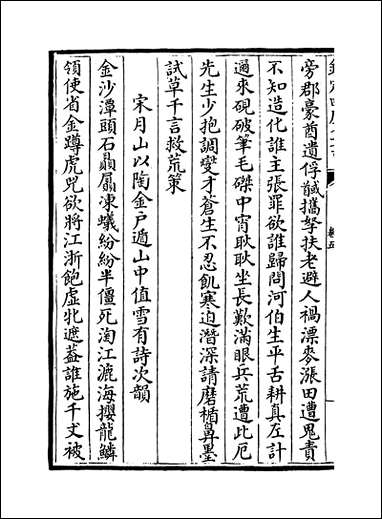 旁郡豪酋遺俘馘攜孥扶老避人禍漂麥漲田遭鬼責
不知造化誰主張罪欲誰歸問河伯生平舌耕真左計
邇來硯破筆毛磔中宵耿耿坐長歎滿眼兵荒遭此厄
先生少抱調燮才蒼生不忍飢寒迫潛深請磨楯鼻墨
試草千言救荒策
宋月山以陶金戶遁山中值雪有詩次韻
金沙潭頭石贔屭凍蟻紛紛半僵死淘江漉海攖龍鱗
領使省金蹲虎兕欲將江浙飽虛牝遮蓋誰施千丈被